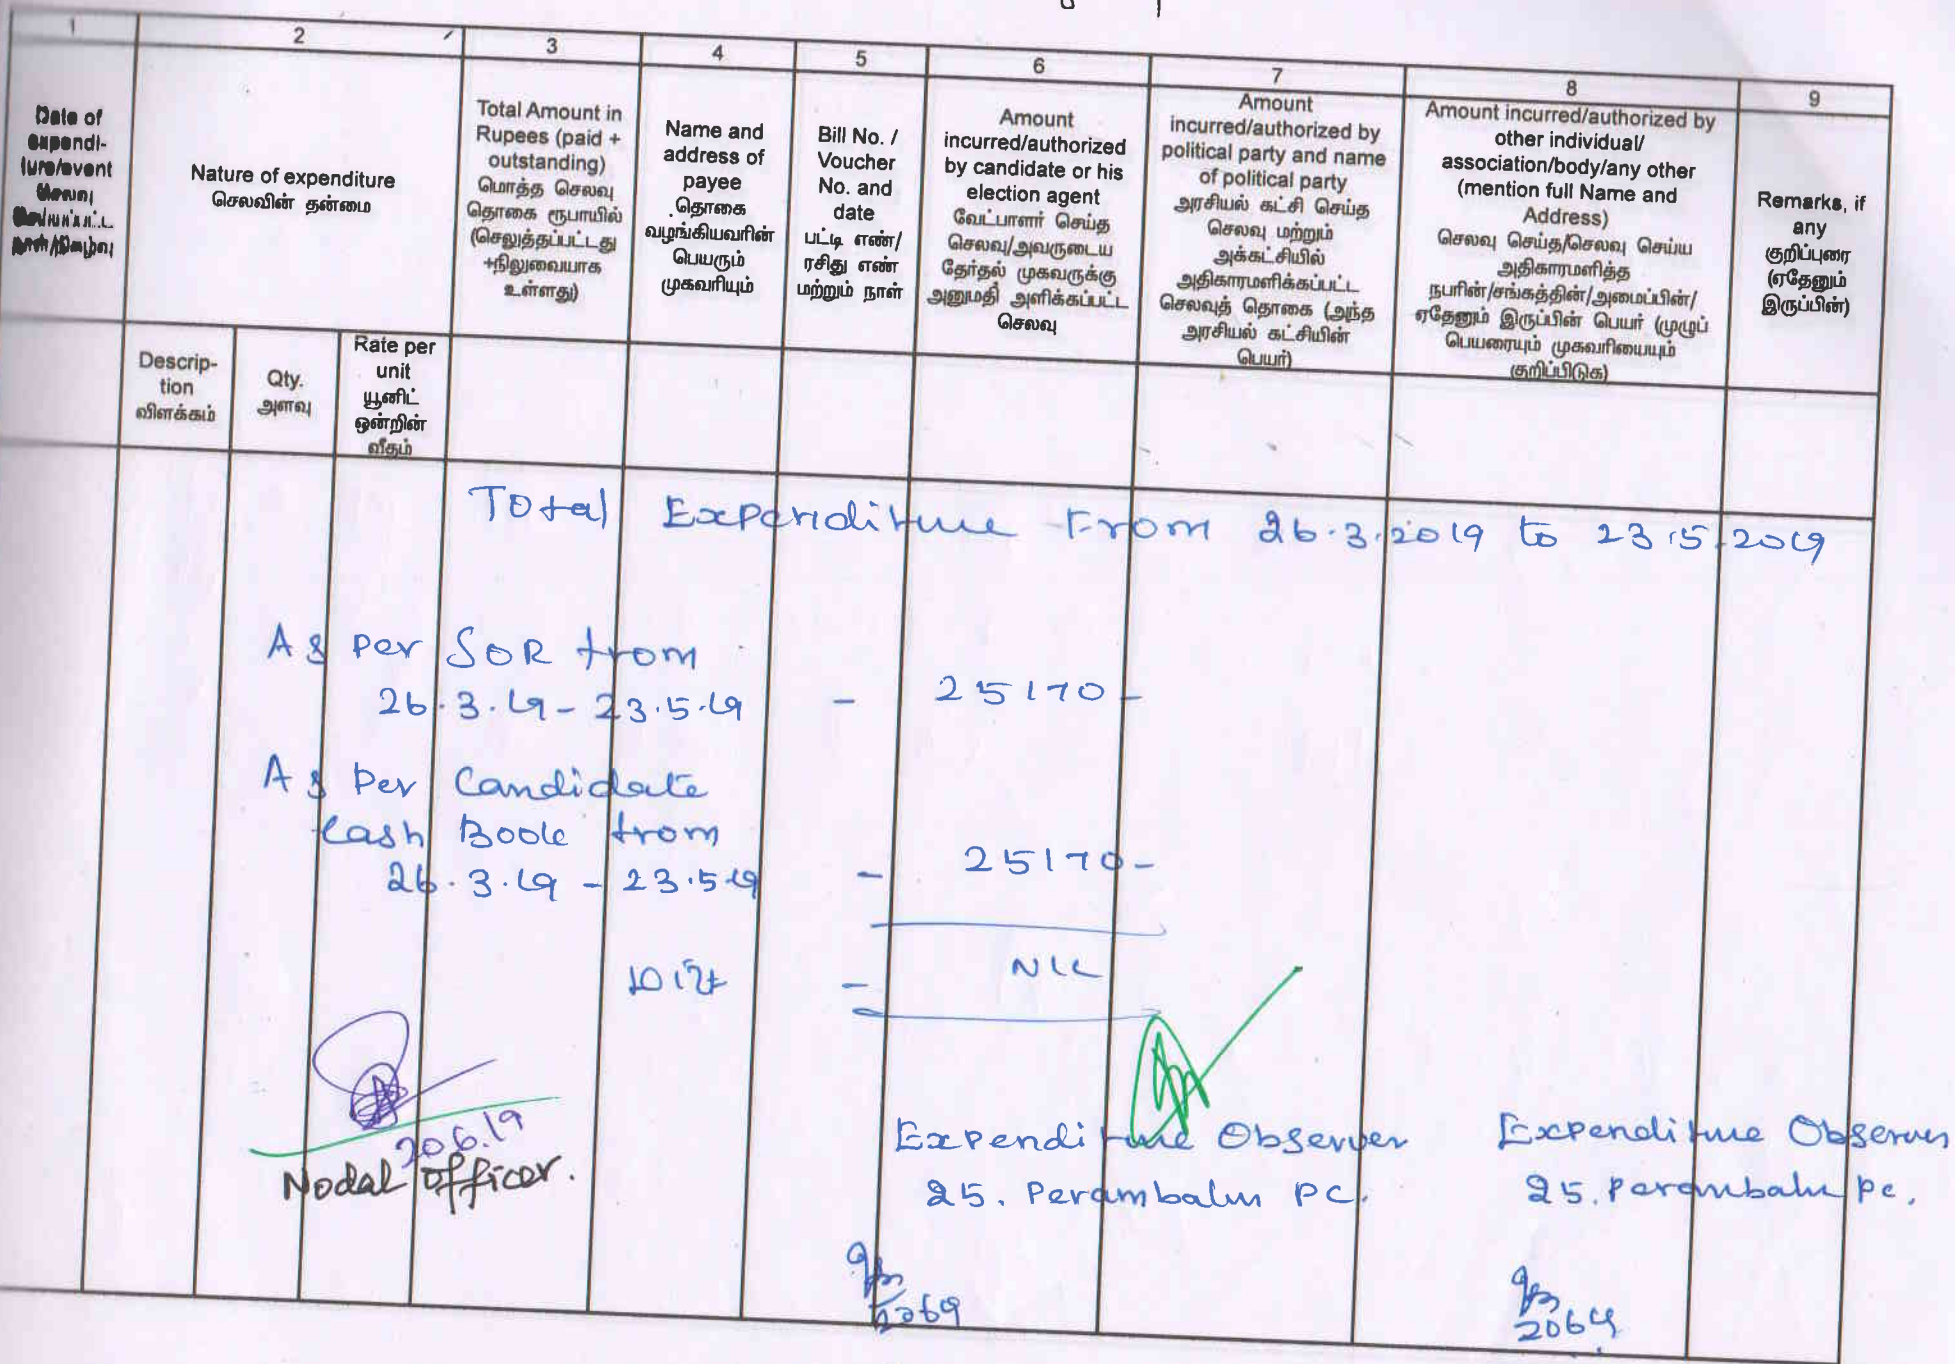 1 2 3 4 5 6 7 8 9
Date of
expendi-
ture/event
செலவு
செய்யப்பட்ட
நாள்/நிகழ்வு
Nature of expenditure
செலவின் தன்மை
Total Amount in
Rupees (paid +
outstanding)
மொத்த செலவு
தொகை ரூபாயில்
(செலுத்தப்பட்டது
+நிலுவையாக
உள்ளது)
Name and
address of
payee
தொகை
வழங்கியவரின்
பெயரும்
முகவரியும்
Bill No. /
Voucher
No. and
date
பட்டி எண்/
ரசிது எண்
மற்றும் நாள்
Amount
incurred/authorized
by candidate or his
election agent
வேட்பாளர் செய்த
செலவு/அவருடைய
தேர்தல் முகவருக்கு
அனுமதி அளிக்கப்பட்ட
செலவு
Amount
incurred/authorized by
political party and name
of political party
அரசியல் கட்சி செய்த
செலவு மற்றும்
அக்கட்சியில்
அதிகாரமளிக்கப்பட்ட
செலவுத் தொகை (அந்த
அரசியல் கட்சியின்
பெயர்)
Amount incurred/authorized by
other individual/
association/body/any other
(mention full Name and
Address)
செலவு செய்த/செலவு செய்ய
அதிகாரமளித்த
நபரின்/சங்கத்தின்/அமைப்பின்/
ஏதேனும் இருப்பின் பெயர் (முழுப்
பெயரையும் முகவரியையும்
குறிப்பிடுக)
Remarks, if
any
குறிப்புரை
(ஏதேனும்
இருப்பின்)
Descrip-
tion
விளக்கம்
Qty.
அளவு
Rate per
unit
யூனிட்
ஒன்றின்
வீதம்
Total Expenditure From 26.3.2019 to 23.5.2019
As Per SOR from
26.3.19 - 23.5.19 - 25170 -
As Per Candidate
Cash Book from
26.3.19 - 23.5.19 - 25170 -
- NIL
20.6.19
Nodal Officer.
Expenditure Observer
25. Perambalur PC.
Expenditure Observer
25. Perambalur Pc.